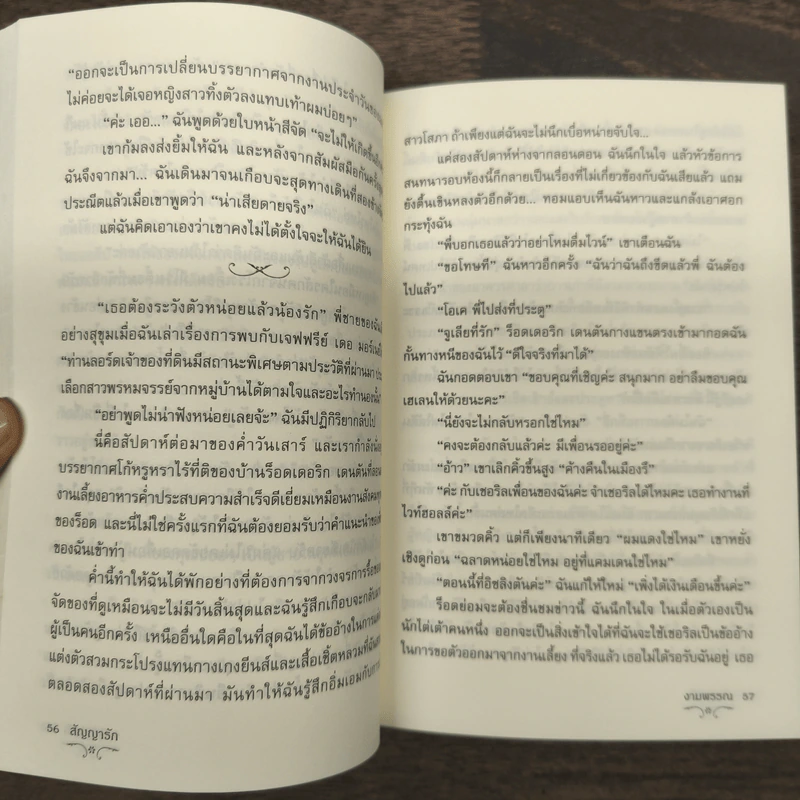 “ออกจะเป็นการเปลี่ยนบรรยากาศจากงานประจำวันของผม
ไม่ค่อยจะได้เจอหญิงสาวทิ้งตัวลงแทบเท้าผมบ่อยๆ”
“ค่ะ เออ...” ฉันพูดด้วยใบหน้าสีจัด “จะไม่ให้เกิดขึ้น
เขาก้มลงส่งยิ้มให้ฉัน และหลังจากสัมผัสมือกัน
ฉันจึงจากมา... ฉันเดินมาจนเกือบจะสุดทางเดินที่สองข้าง
ประณีตแล้วเมื่อเขาพูดว่า “น่าเสียดายจริง”
แต่ฉันคิดเอาเองว่าเขาคงไม่ได้ตั้งใจจะให้ฉันได้ยิน
“เธอต้องระวังตัวหน่อยแล้วน้องรัก” พี่ชายของฉัน
อย่างสุขุมเมื่อฉันเล่าเรื่องการพบกับเจฟฟรีย์ เดอ
“ท่านลอร์ดเจ้าของที่ดินมีสถานะพิเศษตามประวัติที่ผ่านมา
เลือกสาวพรหมจรรย์จากหมู่บ้านได้ตามใจและอะไรทำนองนั้น
“อย่าพูดไม่น่าฟังหน่อยเลยจ้ะ” ฉันมีปฏิกิริยากลับไป
นี่คือสัปดาห์ต่อมาของค่ำวันเสาร์ และเรากำลัง
บรรยากาศโก้หรูหราไร้ที่ติของบ้านร็อดเดอริก เดนตัน
งานเลี้ยงอาหารค่ำประสบความสำเร็จดีเยี่ยมเหมือนงาน
ของร็อด และนี่ไม่ใช่ครั้งแรกที่ฉันต้องยอมรับว่าคำแนะนำ
ของฉันเข้าท่า
ค่ำนี้ทำให้ฉันได้พักอย่างที่ต้องการจากวงจรการรื้อ
จัดของที่ดูเหมือนจะไม่มีวันสิ้นสุดและฉันรู้สึกเกือบจะ
ผู้เป็นคนอีกครั้ง เหนืออื่นใดคือในที่สุดฉันได้ข้ออ้างในการ
แต่งตัวสวมกระโปรงแทนกางเกงยีนส์และเสื้อเชิ้ตหลวมที่
ตลอดสองสัปดาห์ที่ผ่านมา มันทำให้ฉันรู้สึกอิ่มเอมกับ
56 สัญญารัก
สาวโสภา ถ้าเพียงแต่ฉันจะไม่นึกเบื่อหน่ายจับใจ...
แค่สองสัปดาห์ห่างจากลอนดอน ฉันนึกในใจ แล้วหัวข้อการ
สนทนารอบห้องนี้ก็กลายเป็นเรื่องที่ไม่เกี่ยวข้องกับฉันเสียแล้ว แถม
ยังตื่นเขินหลงตัวอีกด้วย... ทอมแอบเห็นฉันหาวและแกล้งเอาศอก
กระทุ้งฉัน
“พี่บอกเธอแล้วว่าอย่าโหมดื่มไวน์” เขาเตือนฉัน
“ขอโทษที” ฉันหาวอีกครั้ง “ฉันว่าฉันถึงขีดแล้วพี่ ฉันต้อง
ไปแล้ว”
“โอเค พี่ไปส่งที่ประตู”
“จูเลียที่รัก” ร็อดเดอริก เดนตันกางแขนตรงเข้ามากอดฉัน
กั้นทางหนีของฉันไว้ “ดีใจจริงที่มาได้”
ฉันกอดตอบเขา “ขอบคุณที่เชิญค่ะ สนุกมาก อย่าลืมขอบคุณ
เฮเลนให้ด้วยนะคะ”
“นี่ยังจะไม่กลับหรอกใช่ไหม”
“คงจะต้องกลับแล้วค่ะ มีเพื่อนรออยู่ค่ะ”
“อ้าว” เขาเลิกคิ้วขึ้นสูง “ค้างคืนในเมืองรึ”
“ค่ะ กับเชอริลเพื่อนของฉันค่ะ จำเชอริลได้ไหมคะ เธอทำงานที่
ไวท์ฮอลล์ค่ะ”
เขาขมวดคิ้ว แต่ก็เพียงนาทีเดียว “ผมแดงใช่ไหม” เขาหยั่ง
เชิงดูก่อน “ฉลาดหน่อยใช่ไหม อยู่ที่แคมเดนใช่ไหม”
“ตอนนี้ที่อิชลิงตันค่ะ” ฉันแก้ให้ใหม่ “เพิ่งได้เงินเดือนขึ้นค่ะ”
ร็อดย่อมจะต้องชื่นชมข่าวนี้ ฉันนึกในใจ ในเมื่อตัวเองเป็น
นักไต่เต้าคนหนึ่ง ออกจะเป็นสิ่งเข้าใจได้ที่ฉันจะใช้เชอริลเป็นข้ออ้าง
ในการขอตัวออกมาจากงานเลี้ยง ที่จริงแล้ว เธอไม่ได้รอรับฉันอยู่ เธอ
งามพรรณ 57